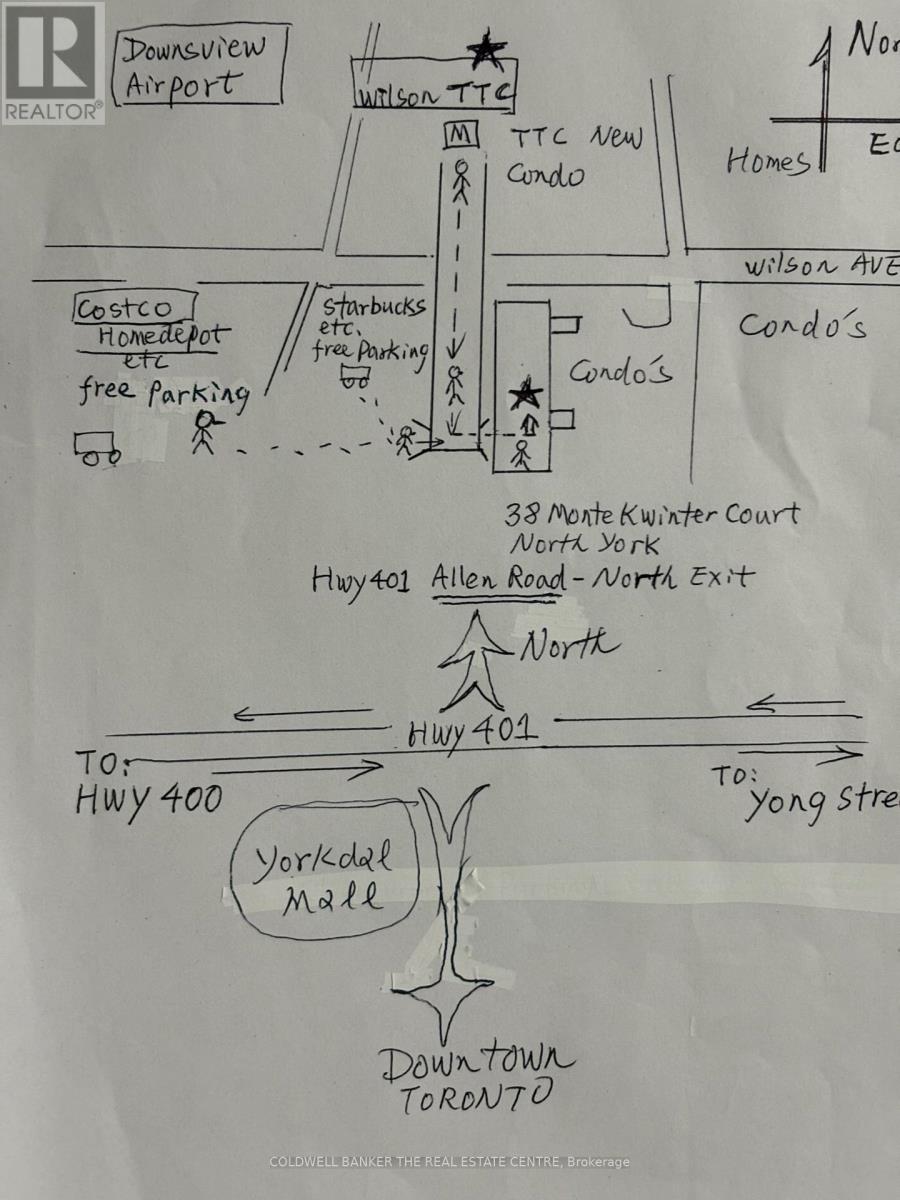 REALTOR®
Downsview
Airport
Wilson TTC
M
TTC New
Condo
Nor
Homes
Wilson AVE
Costco
Homedepot
etc
free Parking
Starbucks
etc.
free Parking
Condo's
Condo's
38 Monte Kwinter Court
North York
Hwy 401 Allen Road - North Exit
North
Hwy 401
TO:
HWY 400
TO:
Yong Stre
Yorkdal
Mall
Downtown
TORONTO
COLDWELL BANKER THE REAL ESTATE CENTRE, Brokerage